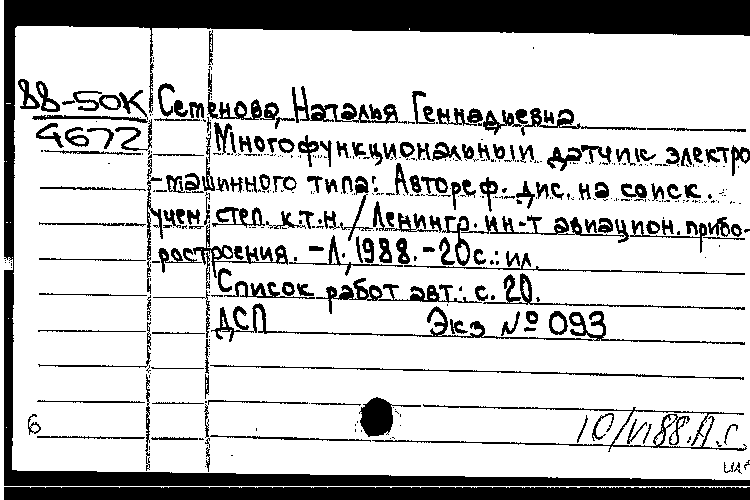 88-50К
4672
Семенова, Наталья Геннадьевна.
Многофункциональный датчик электро
-машинного типа: Автореф. дис. на соиск.
учен. степ. к.т.н. / Ленингр. ин-т авиацион. прибо-
ростроения. - Л., 1988. - 20 с.: ил.
Список работ авт.: с. 20.
ДСП Экз № 093
6 10/VI 88. А.С.